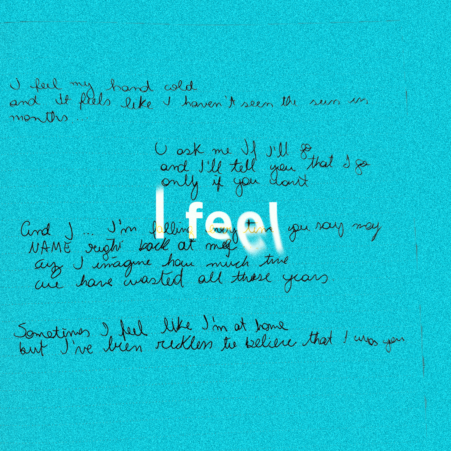 I feel my hand cold
and it feels like I haven't seen the sun in
months
U ask me If I'll go
and I'll tell you that I go
only if you don't
I feel
And I ... I'm falling every time you say my
NAME right back at me
as I imagine how much time
we have wasted all these years.
Sometimes I feel like I'm at home
but I've been reckless to believe that I was you